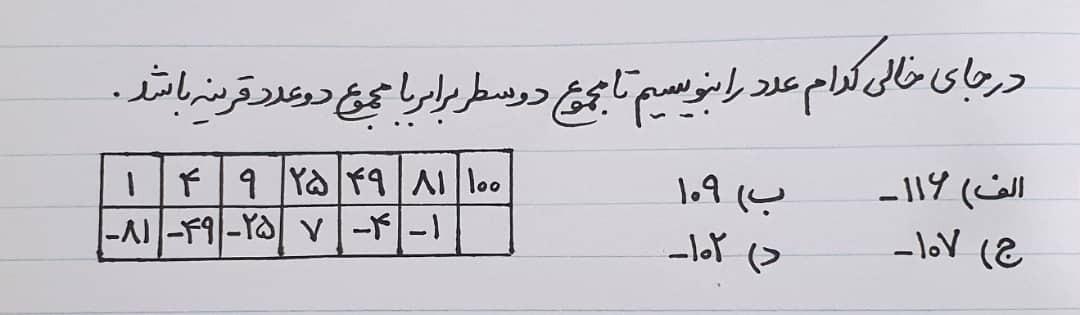 در جای خالی کدام عدد را بنویسیم تا مجموع دو سطر برابر با مجموع دو عدد قرینه باشد.
الف) -۱۱۶ ب) ۱۰۹
ج) -۱۰۷ د) -۱۰۲
۱ ۴ ۹ ۲۵ ۴۹ ۸۱ ۱۰۰
-۸۱ -۴۹ -۲۵ ۷ -۴ -۱